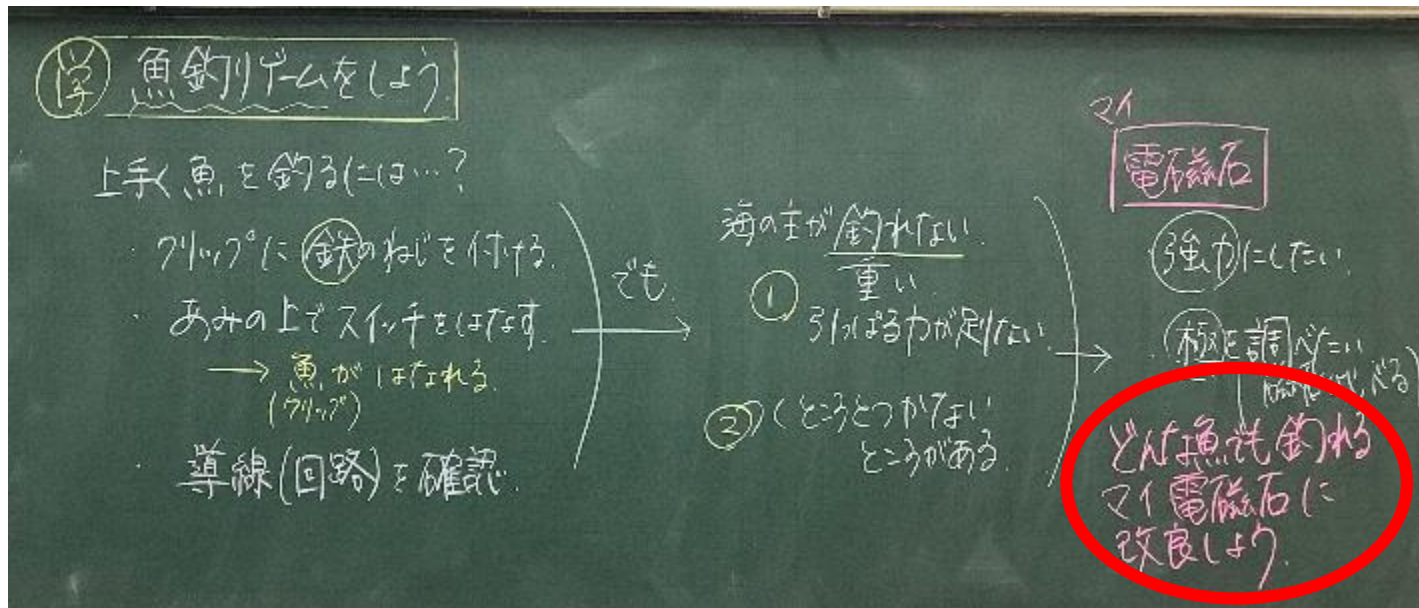 学 魚釣りゲームをしよう
上手く魚を釣るには…?
・クリップに鉄のねじを付ける.
・あみの上でスイッチをはなす.
→魚がはなれる.
(クリップ)
・導線(回路)を確認.
でも.
海の主が釣れない.
① 重い
引っぱる力が足りない.
② つくところとつかない
ところがある.
マイ
電磁石
・強力にしたい.
・極を調べたい
べる)
どんな魚でも釣れる
マイ電磁石に
改良しよう.